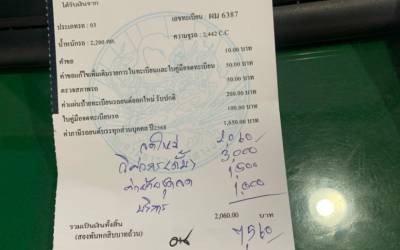 ได้รับเงินจาก
ประเภทรถ : 03 เลขทะเบียน : ผม 6387
น้ำหนักรถ : 2,200 กก. ความจุรถ : 2,442 C.C
ค่าขอ 10.00 บาท
ค่าขอแก้ไขเพิ่มเติมรายการในทะเบียนและใบคู่มือจดทะเบียน 50.00 บาท
ตรวจสภาพรถ 50.00 บาท
ค่าแผ่นป้ายทะเบียนรถยนต์ออกใหม่ รับปกติ 200.00 บาท
ใบคู่มือจดทะเบียนรถ 100.00 บาท
ค่าภาษีรถยนต์บรรทุกส่วนบุคคล ปี2568 1,650.00 บาท
2,060
3,000
1,500
บริการ 1,000
รวมเป็นเงินทั้งสิ้น 2,060.00 บาท
(สองพันหกสิบบาทถ้วน) 7,560